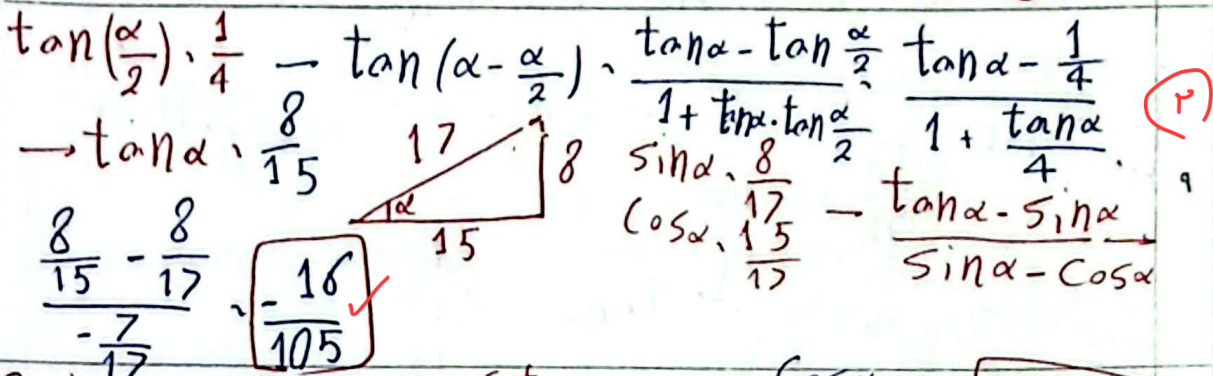 tan(α/2) = 1/4 → tan(α - α/2) = (tanα - tan α/2)/(1 + tanα·tan α/2) = (tanα - 1/4)/(1 + tanα/4) ۲
→ tanα = 8/15 17 8 α 15 sinα = 8/17 cosα = 15/17 → (tanα - sinα)/(sinα - cosα) → ۹
(8/15 - 8/17)/(-7/17) = -16/105